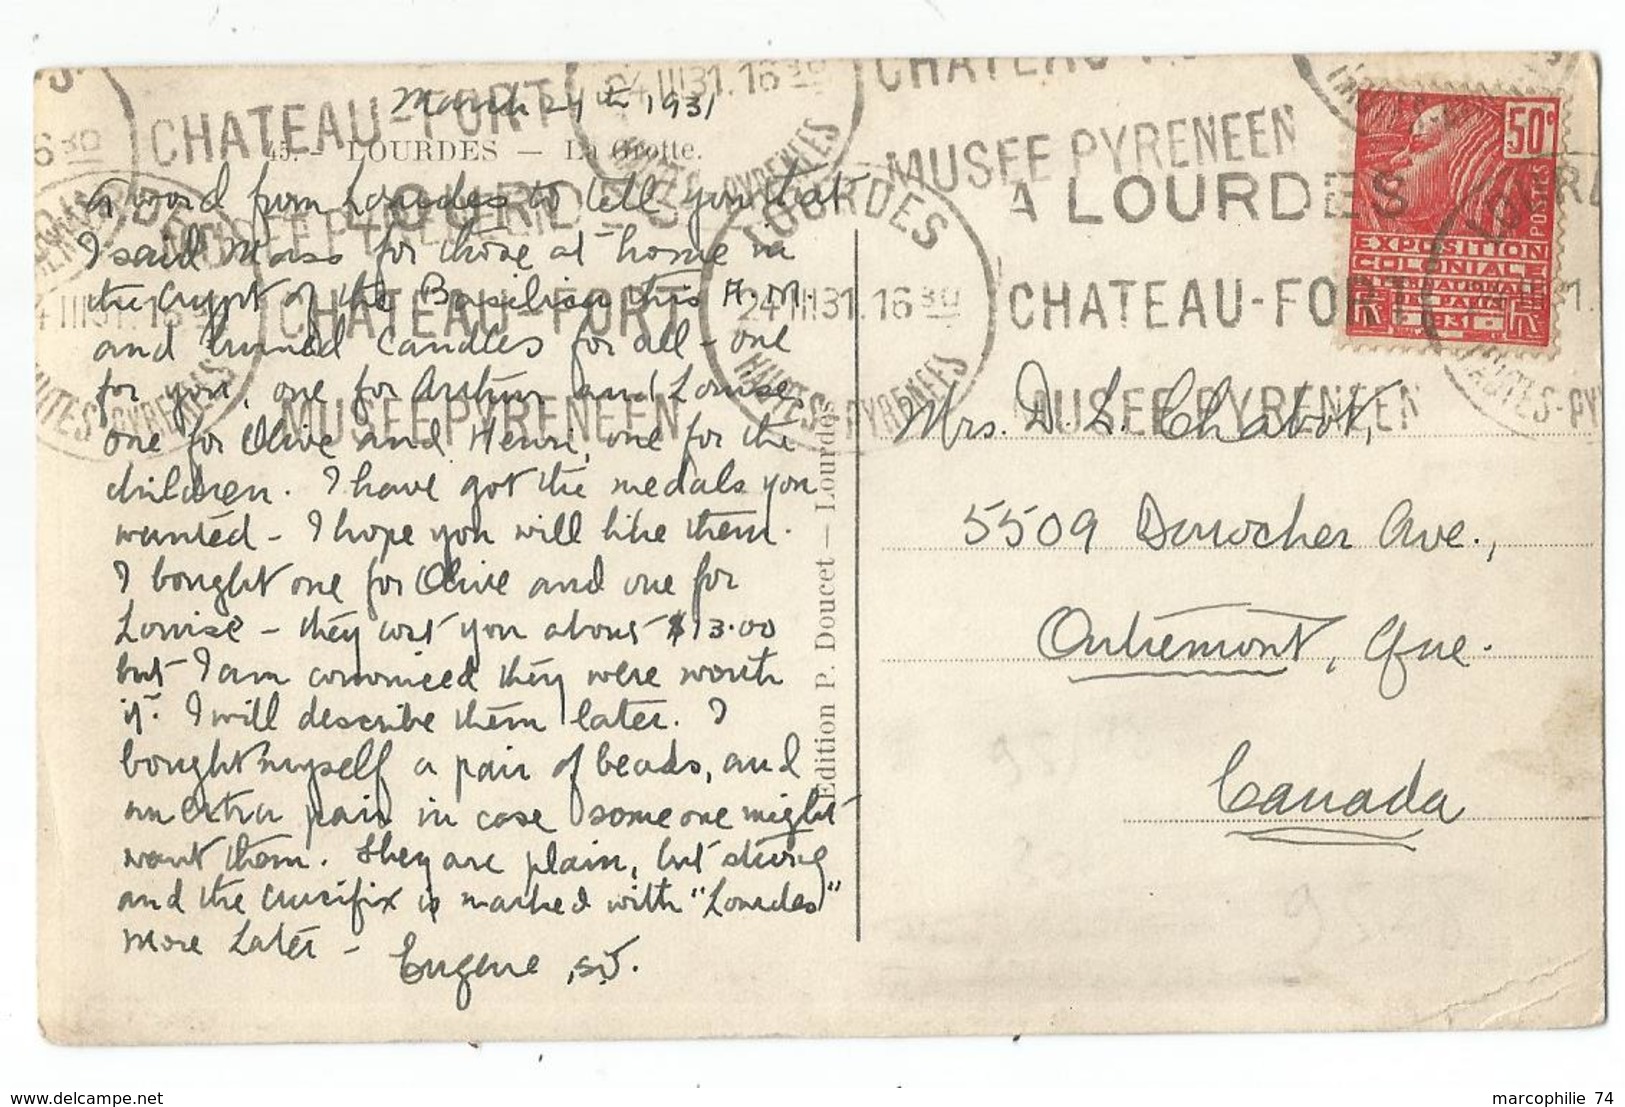 March 24th 1931
45. - LOURDES — La Grotte.
A word from Lourdes to tell you that
I said Mass for those at home in
the crypt of the Basilica this A.M.
and burned candles for all - one
for you, one for Arthur and Louise,
one for Olive and Henri, one for the
children. I have got the medals you
wanted - I hope you will like them.
I bought one for Olive and one for
Louise - they cost you about $13.00
but I am convinced they were worth
it. I will describe them later. I
bought myself a pair of beads, and
an extra pair in case someone might
want them. They are plain, but strong
and the crucifix is marked with "Lourdes"
More Later -
Eugene, S.J.
Edition P. Doucet — Lourdes
CHATEAU-FORT
MUSEE PYRENEEN
A LOURDES
CHATEAU-FORT
MUSEE PYRENEEN
LOURDES
24 III 31. 16 30
HAUTES-PYRENEES
50c
POSTES
EXPOSITION
COLONIALE
INTERNATIONALE
PARIS
1931
RF
Mrs. D. L. Chabot,
5509 Durocher Ave.,
Outremont, Que.
Canada
marcophilie 74